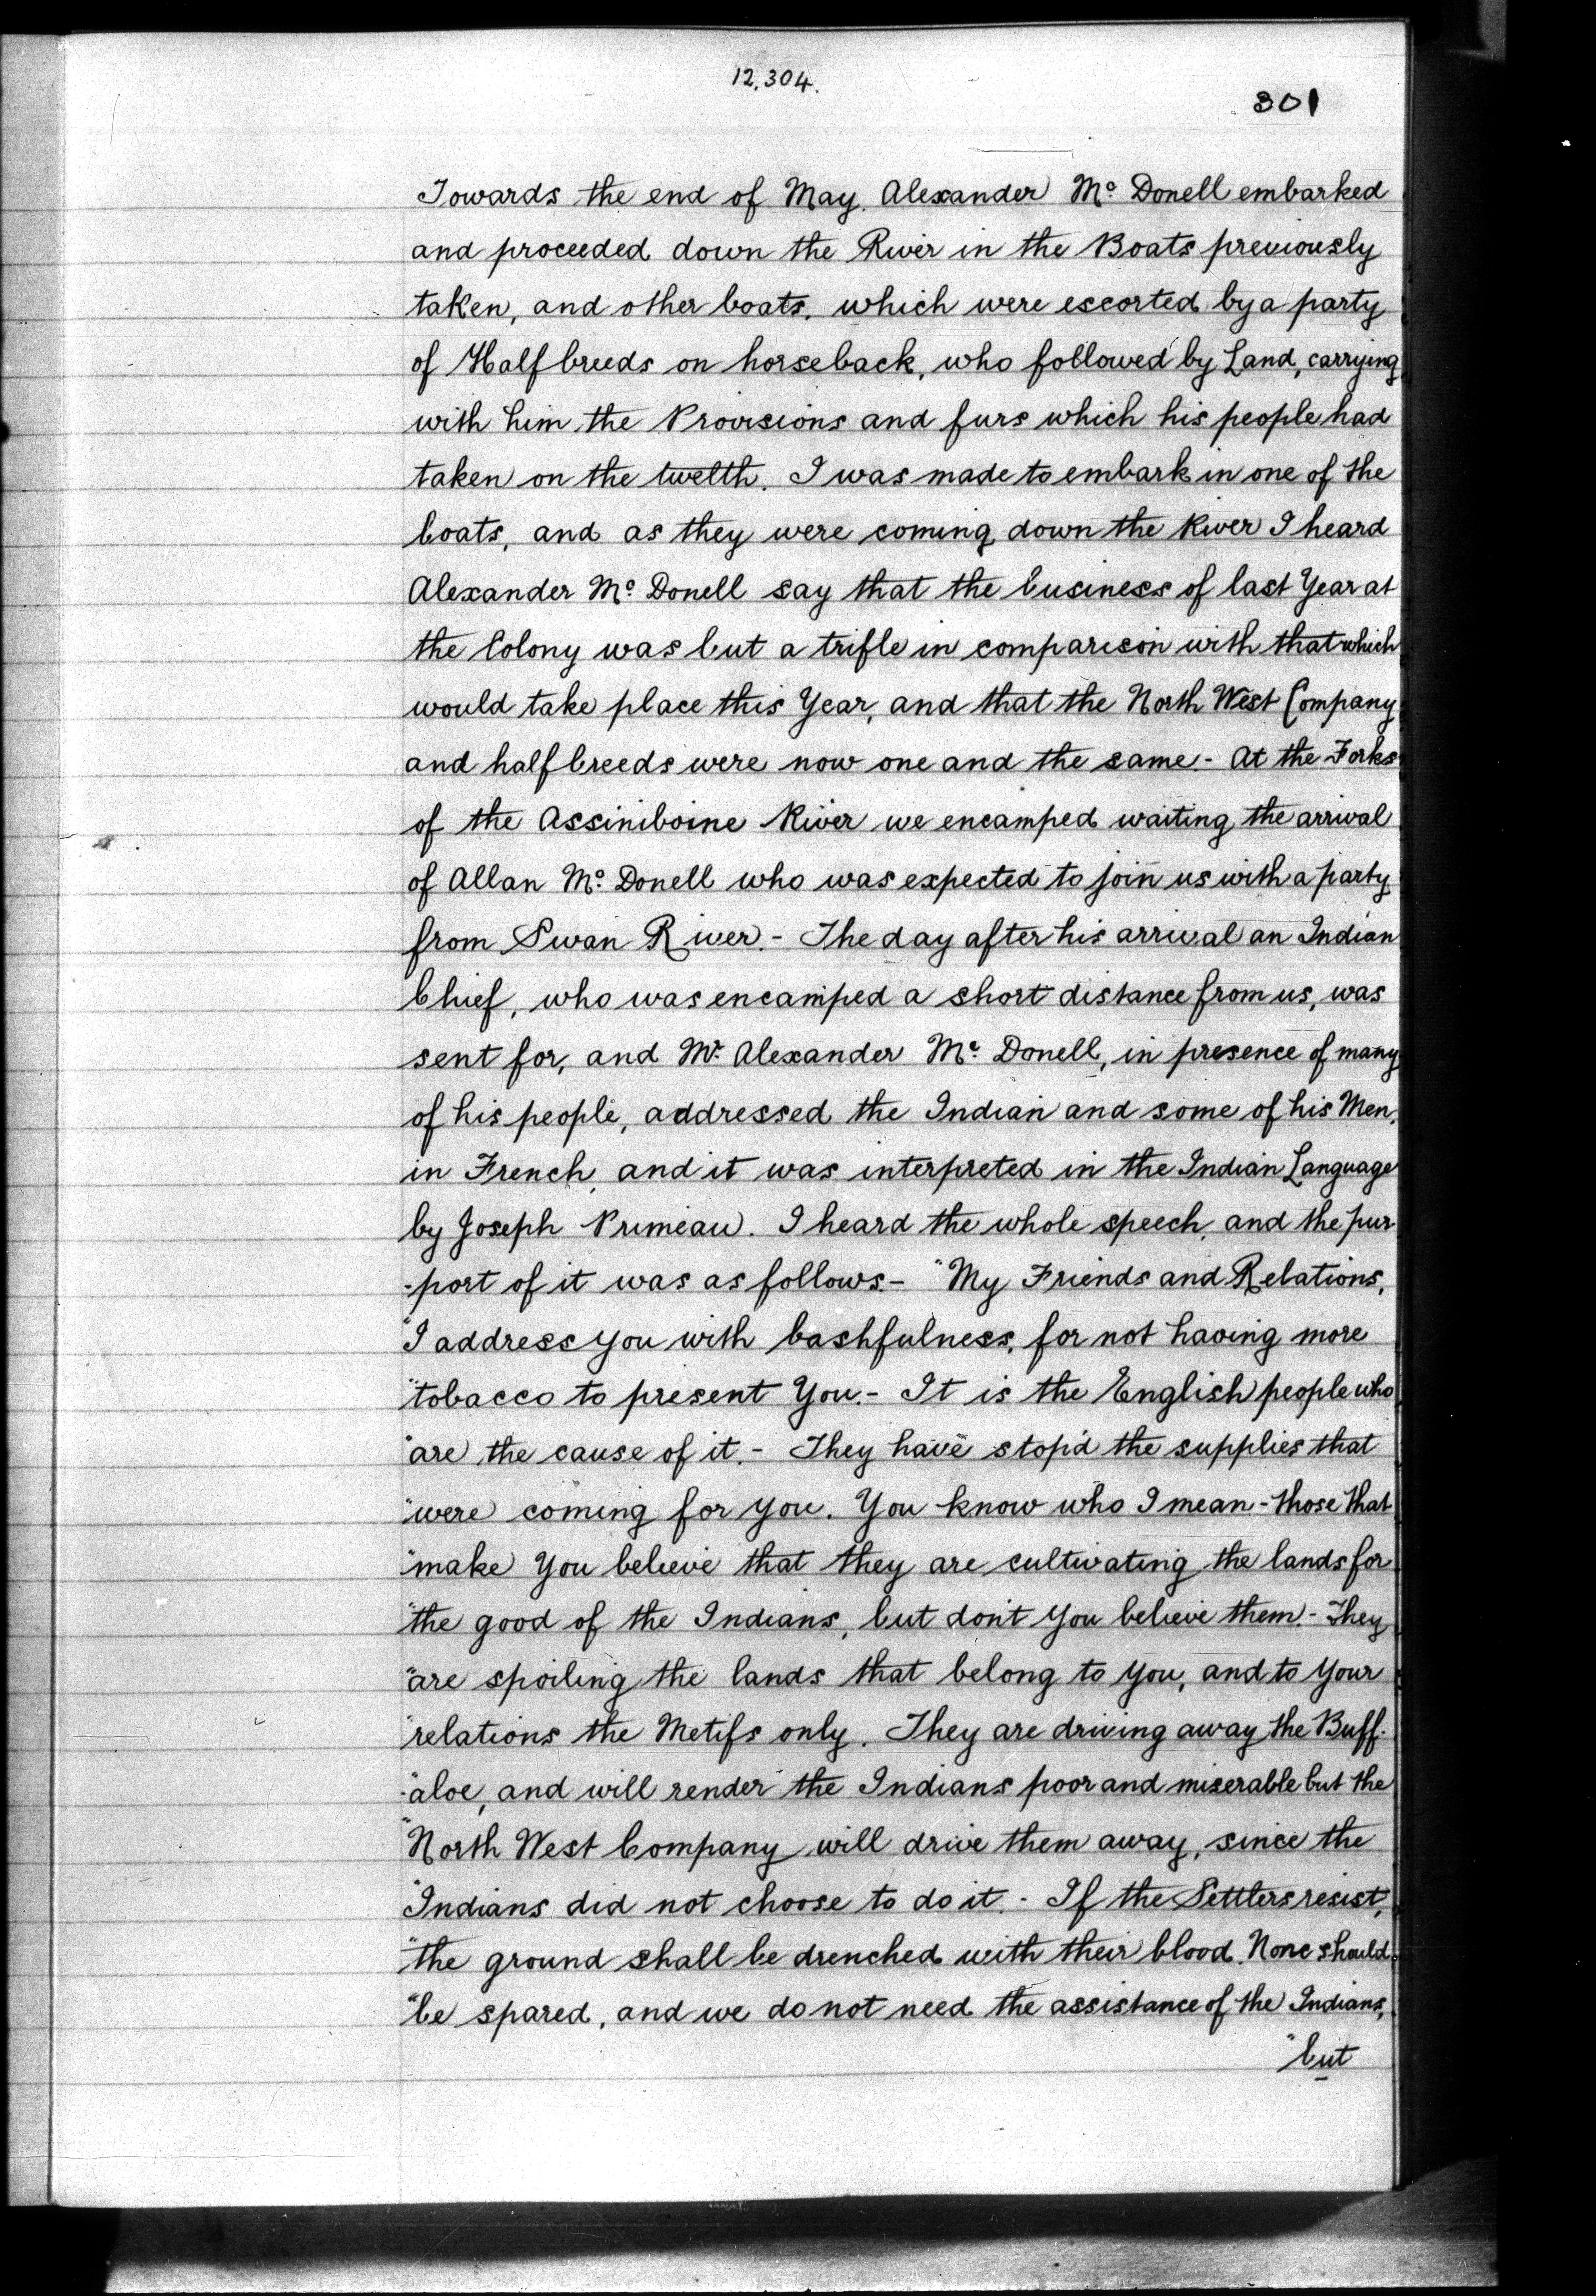 12,304.
301
Towards the end of May. Alexander Mc Donell embarked
and proceeded down the River in the Boats previously
taken, and other boats, which were escorted by a party
of Half breeds on horseback, who followed by Land, carrying
with him the Provisions and furs which his people had
taken on the twelth. I was made to embark in one of the
boats, and as they were coming down the River I heard
Alexander Mc Donell say that the business of last Year at
the Colony was but a trifle in comparison with that which
would take place this Year, and that the North West Company
and half breeds were now one and the same. - At the Forks
of the Assiniboine River we encamped waiting the arrival
of Allan Mc Donell who was expected to join us with a party
from Swan River. - The day after his arrival an Indian
Chief, who was encamped a short distance from us, was
sent for, and Mr. Alexander Mc Donell, in presence of many
of his people, addressed the Indian and some of his Men,
in French, and it was interpreted in the Indian Language
by Joseph Primeau. I heard the whole speech, and the pur-
-port of it was as follows. - "My Friends and Relations,
"I address you with bashfulness, for not having more
"tobacco to present You. - It is the English people who
"are the cause of it. - They have stop'd the supplies that
"were coming for you. You know who I mean - those that
"make You believe that they are cultivating the lands for
"the good of the Indians, but don't You believe them. - They
"are spoiling the lands that belong to you, and to Your
"relations the Metifs only. They are driving away the Buff-
"-aloe, and will render the Indians poor and miserable but the
"North West Company will drive them away, since the
"Indians did not choose to do it. - If the Settlers resist,
"the ground shall be drenched with their blood. None should
"be spared, and we do not need the assistance of the Indians,
"but